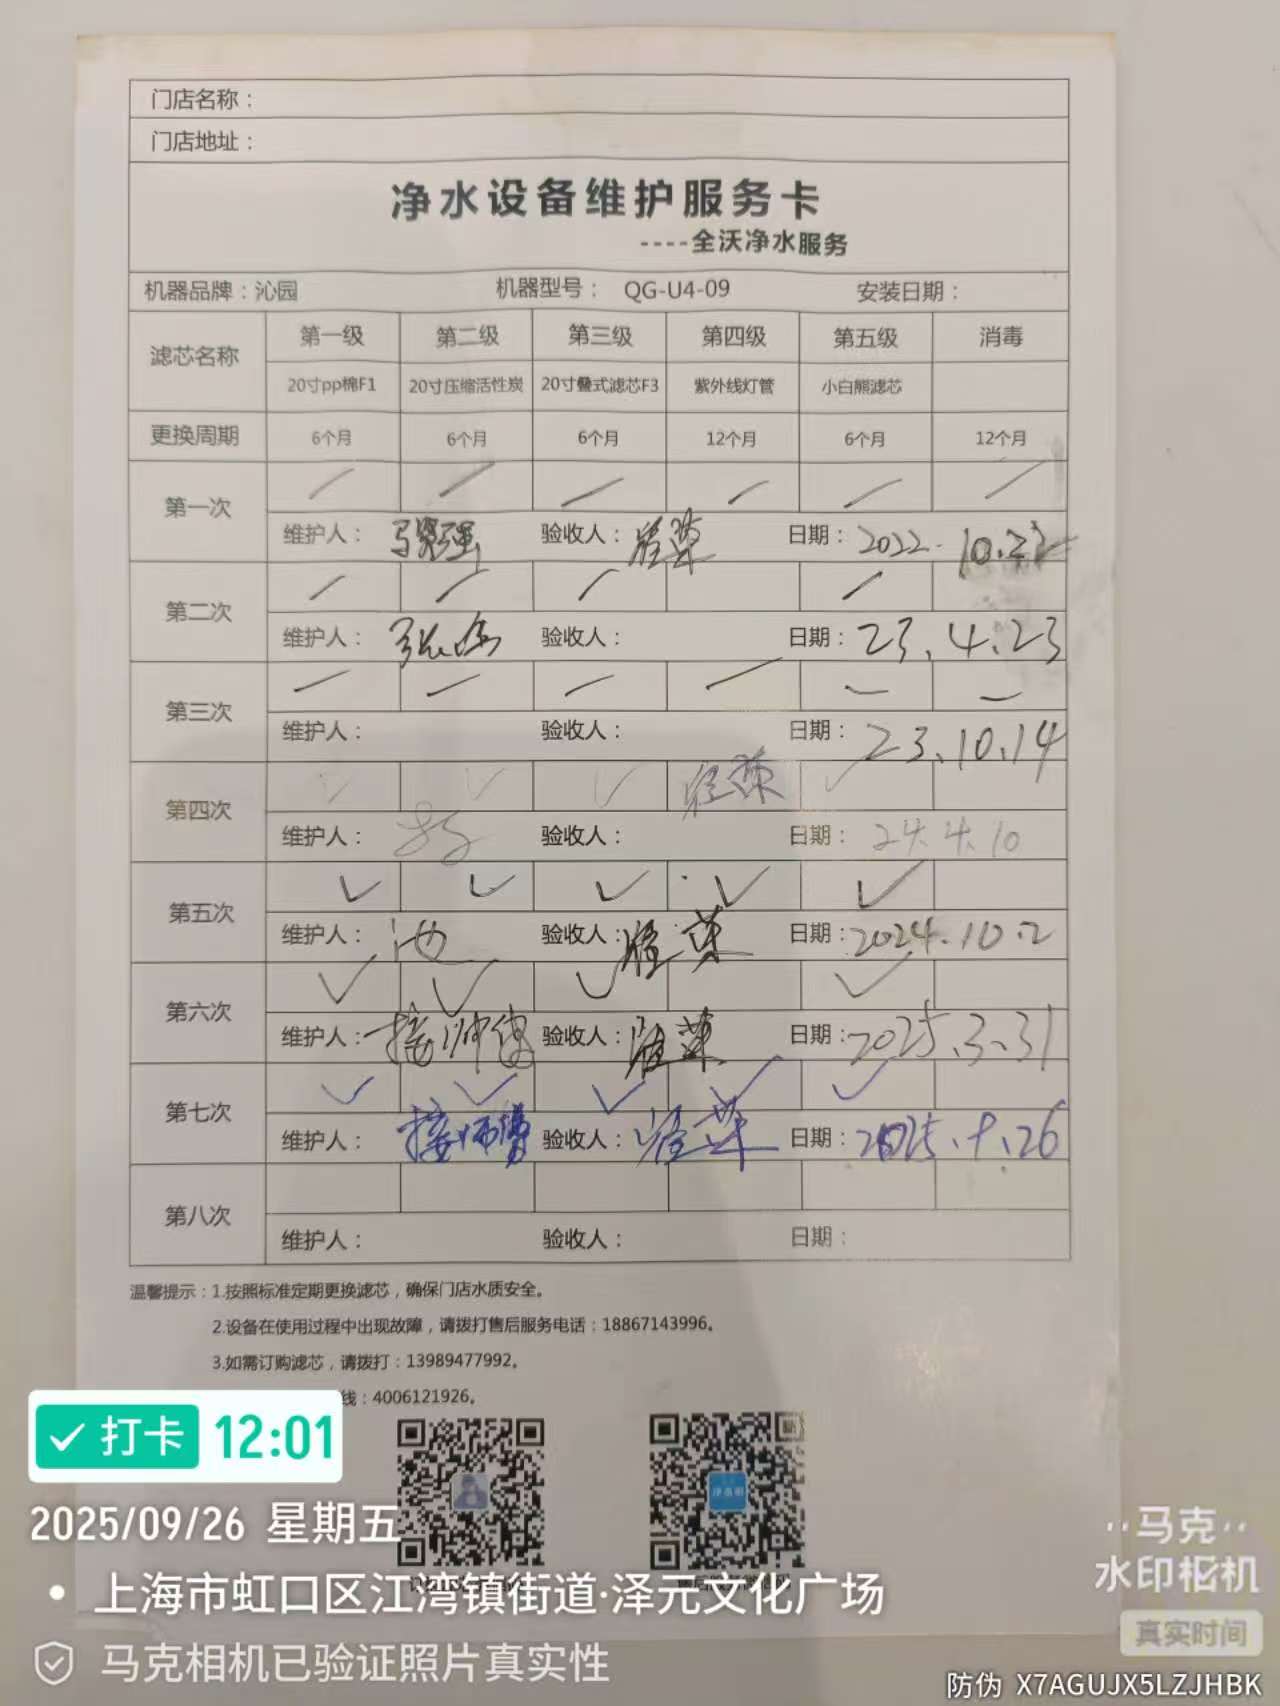 门店名称：
门店地址：
净水设备维护服务卡
----全沃净水服务
机器品牌：沁园 机器型号： QG-U4-09 安装日期：
滤芯名称 第一级 第二级 第三级 第四级 第五级 消毒
20寸pp棉F1 20寸压缩活性炭 20寸叠式滤芯F3 紫外线灯管 小白熊滤芯
更换周期 6个月 6个月 6个月 12个月 6个月 12个月
第一次
维护人： 验收人： 日期：2022.10.
第二次
维护人： 验收人： 日期：23.4.23
第三次
维护人： 验收人： 日期：23.10.14
第四次 ✓ ✓ ✓ ✓
维护人： 验收人： 日期：24.4.10
第五次 ✓ ✓ ✓ ✓ ✓
维护人：池 验收人： 日期：2024.10.2
第六次 ✓ ✓ ✓ ✓
维护人： 验收人： 日期：2025.3.31
第七次 ✓ ✓ ✓ ✓ ✓
维护人： 验收人： 日期：2025.9.26
第八次
维护人： 验收人： 日期：
温馨提示：1.按照标准定期更换滤芯，确保门店水质安全。
2.设备在使用过程中出现故障，请拨打售后服务电话：18867143996。
3.如需订购滤芯，请拨打：13989477992。
线：4006121926。
打卡 12:01
2025/09/26 星期五
上海市虹口区江湾镇街道·泽元文化广场
马克相机已验证照片真实性
马克
水印相机
真实时间
防伪 X7AGUJX5LZJHBK